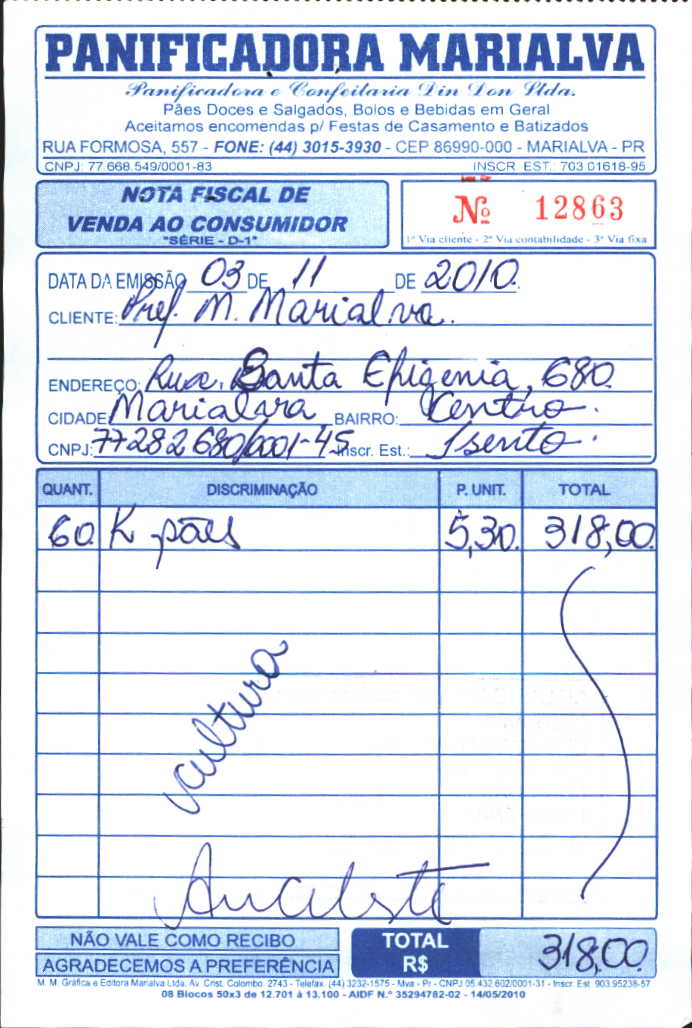 PANIFICADORA MARIALVA
Panificadora e Confeitaria Din Don Ltda.
Pães Doces e Salgados, Bolos e Bebidas em Geral
Aceitamos encomendas p/ Festas de Casamento e Batizados
RUA FORMOSA, 557 - FONE: (44) 3015-3930 - CEP 86990-000 - MARIALVA - PR
CNPJ: 77.668.549/0001-83 INSCR. EST. 703.01618-95
NOTA FISCAL DE
VENDA AO CONSUMIDOR
"SÉRIE - D-1"
Nº 12863
1ª Via cliente - 2ª Via contabilidade - 3ª Via fixa
DATA DA EMISSÃO 03 DE 11 DE 2010.
CLIENTE: Pref. M. Marialva.
ENDEREÇO: Rua. Santa Efigenia, 680.
CIDADE Marialva BAIRRO: Centro.
CNPJ: 77282680/0001-45 Inscr. Est.: Isento.
QUANT. DISCRIMINAÇÃO P. UNIT. TOTAL
60 K pães 5,30. 318,00.
cultura
NÃO VALE COMO RECIBO
AGRADECEMOS A PREFERÊNCIA
TOTAL
R$ 318,00.
M. M. Gráfica e Editora Marialva Ltda. Av. Crist. Colombo, 2743 - Telefax: (44) 3232-1575 - Mva - Pr - CNPJ 95.432.602/0001-31 - Inscr. Est. 903.95238-57
08 Blocos 50x3 de 12.701 à 13.100 - AIDF N.º 35294782-02 - 14/05/2010